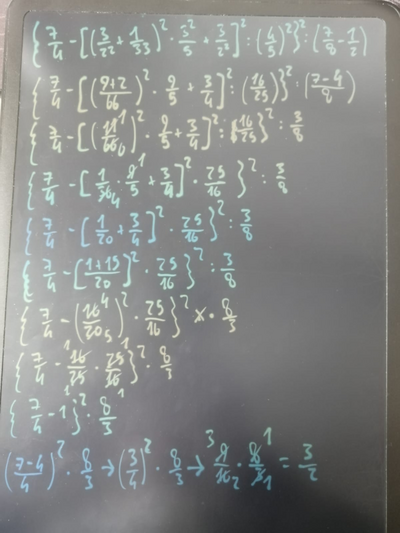 {7/4 - [(3/22 + 1/33)² · 3²/5 + 3/2²]² : (4/5)²}² : (7/8 - 1/2)
{7/4 - [(9+2/66)² · 9/5 + 3/4]² : (16/25)}² : (7-4/8)
{7/4 - [(11¹/66₆)² · 9/5 + 3/4]² : 16/25}² : 3/8
{7/4 - [1/36₄ · 9¹/5 + 3/4]² · 25/16}² : 3/8
{7/4 - [1/20 + 3/4]² · 25/16}² : 3/8
{7/4 - [1+15/20]² · 25/16}² : 3/8
{7/4 - (16⁴/20₅)² · 25/16}² × · 8/3
{7/4 - ¹16/25₁ · 25¹/16₁}² · 8/3
{7/4 - 1}² · 8/3
(7-4/4)² · 8/3 → (3/4)² · 8/3 → ³9/16₂ · 8¹/3₁ = 3/2